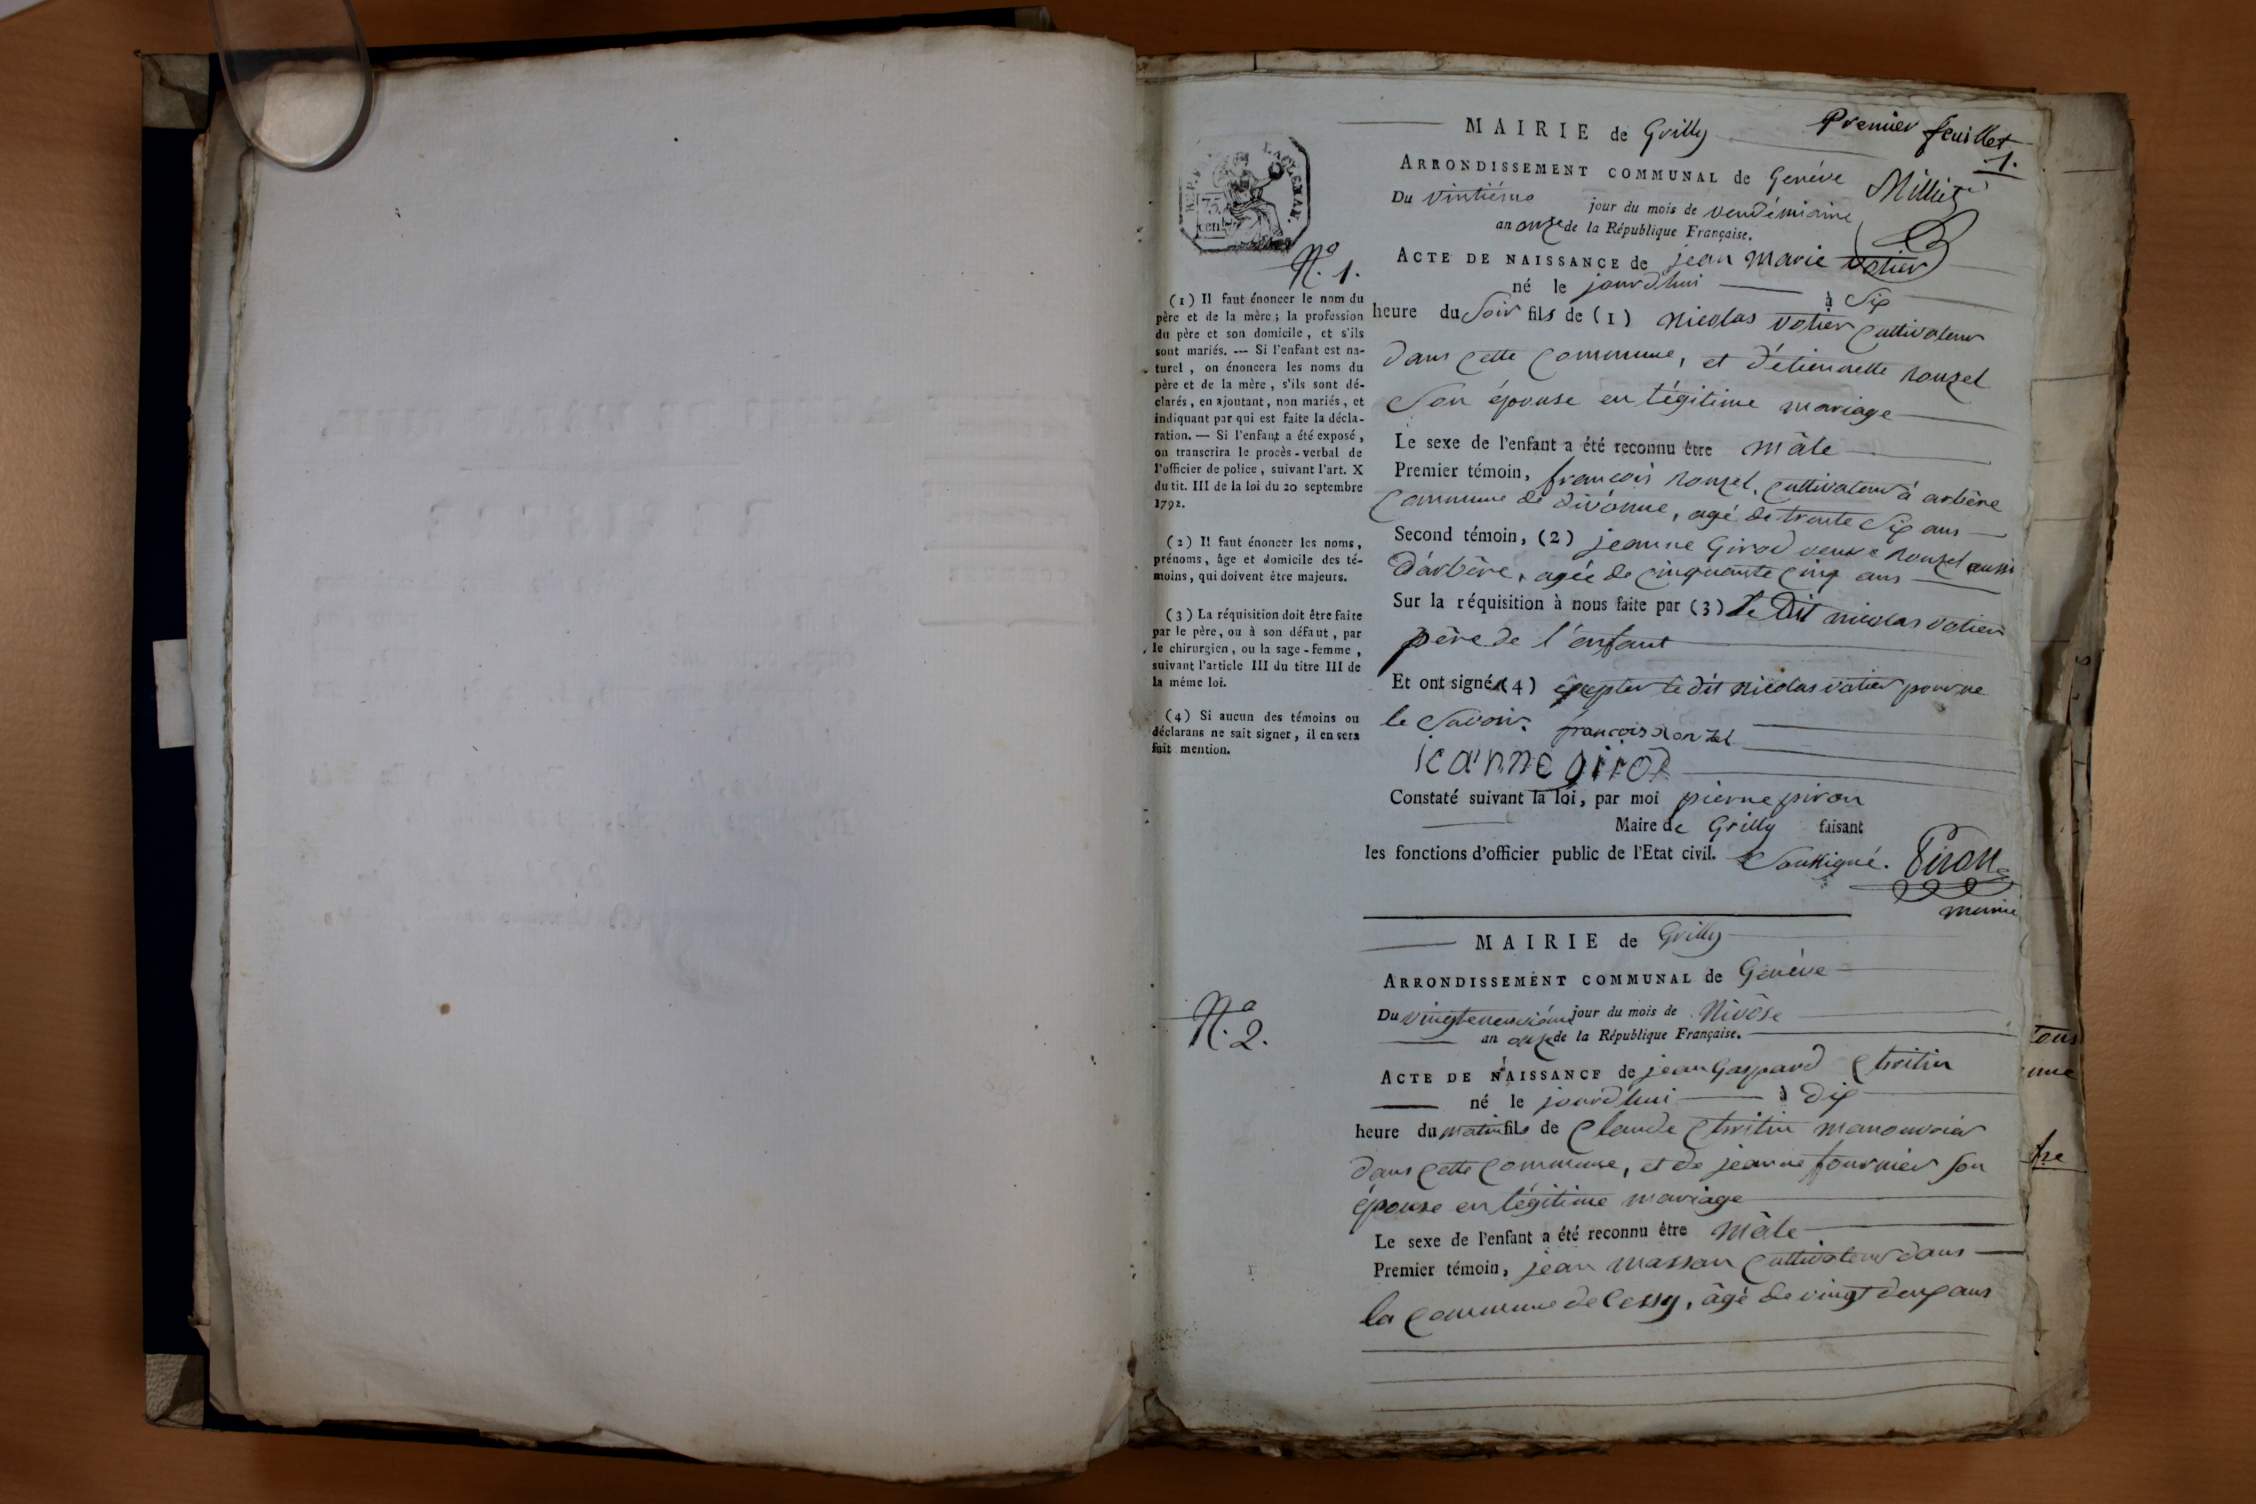 Premier feuillet
1.
Milliet
MAIRIE de Grilly
ARRONDISSEMENT COMMUNAL de Genève
Du vintiéme jour du mois de vendémiaine
an onze de la République Française.
ACTE DE NAISSANCE de jean marie votier
né le jourd'hui à Six
heure du Soir fils de (1) nicolas votier Cultivateur
dans cette Commune, et d'étiennette rouzel
Son épouse en légitime mariage
Le sexe de l'enfant a été reconnu être mâle
Premier témoin, françois rouzel, Cultivateur à arbère
Commune de divonne, agé de trente Six ans
Second témoin, (2) jeanne Girod veuve rouzel aussi
d'arbère, agée de Cinquante Cinq ans
Sur la réquisition à nous faite par (3) le Dit nicolas votier
père de l'enfant
Et ont signé (4) excepter le dit nicolas votier pour ne
le Savoir. françois rouzel
jeanne girod
Constaté suivant la loi, par moi pierre piron
Maire de Grilly faisant
les fonctions d'officier public de l'Etat civil. Soussigné. Piron
maire
REP. FRA.
75
cent.
N.o 1.
(1) Il faut énoncer le nom du
père et de la mère; la profession
du père et son domicile, et s'ils
sont mariés. — Si l'enfant est na-
turel, on énoncera les noms du
père et de la mère, s'ils sont dé-
clarés, en ajoutant, non mariés, et
indiquant par qui est faite la décla-
ration. — Si l'enfant a été exposé,
on transcrira le procès-verbal de
l'officier de police, suivant l'art. X
du tit. III de la loi du 20 septembre
1792.
(2) Il faut énoncer les noms,
prénoms, âge et domicile des té-
moins, qui doivent être majeurs.
(3) La réquisition doit être faite
par le père, ou à son défaut, par
le chirurgien, ou la sage-femme,
suivant l'article III du titre III de
la même loi.
(4) Si aucun des témoins ou
déclarans ne sait signer, il en sera
fait mention.
N.o 2.
MAIRIE de Grilly
ARRONDISSEMENT COMMUNAL de Genève
Du vingtneuviéme jour du mois de Nivôse
an onze de la République Française.
ACTE DE NAISSANCE de jean Gaspard Chritin
né le jourd'hui à dix
heure du matin fils de Claude Chritin manouvrier
dans cette Commune, et de jeanne fournier Son
épouse en légitime mariage
Le sexe de l'enfant a été reconnu être mâle
Premier témoin, jean masson Cultivateur dans
la Commune de Cessy, âgé de vingt deux ans